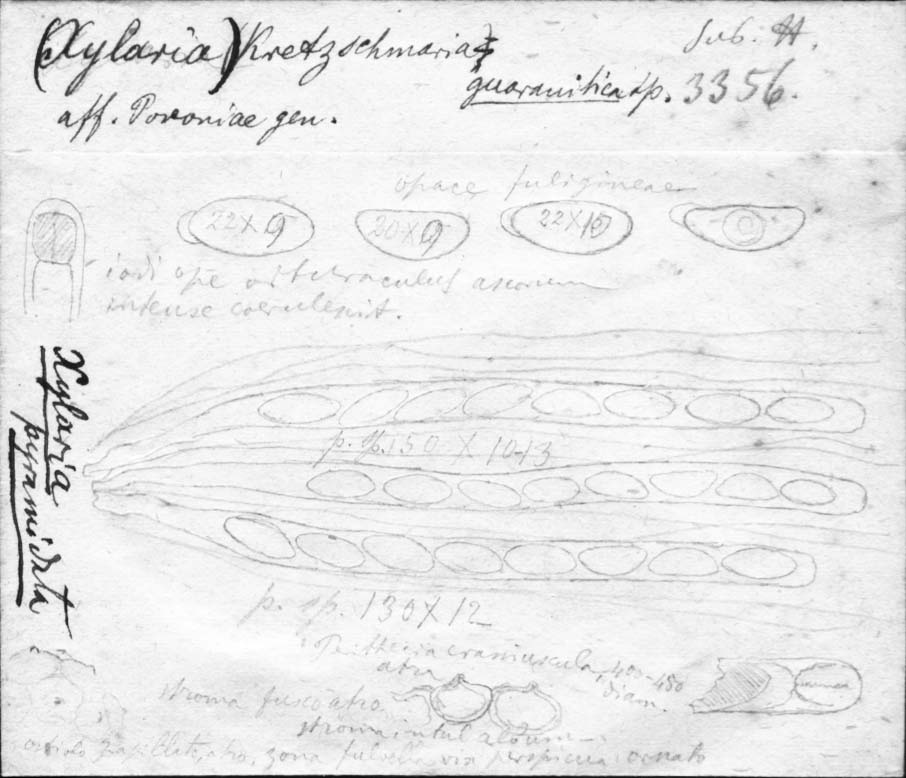 (Xylaria) Kretzschmaria
Sub. H.
guaranitica sp. 3356.
aff. Poroniae gen.
opace fuligineae
22×9 20×9 22×10
iodi ope ascorum
intense coerulescit.
Xylaria
pyramidata
p. sp. 150 × 10-13
p. sp. 130 × 12
Perithecia crassiuscula, 400-450
atra diam.
stroma fusco atro
stroma intus album
ostiolo papillato, atro, zona fulvella vix perspicua ornato